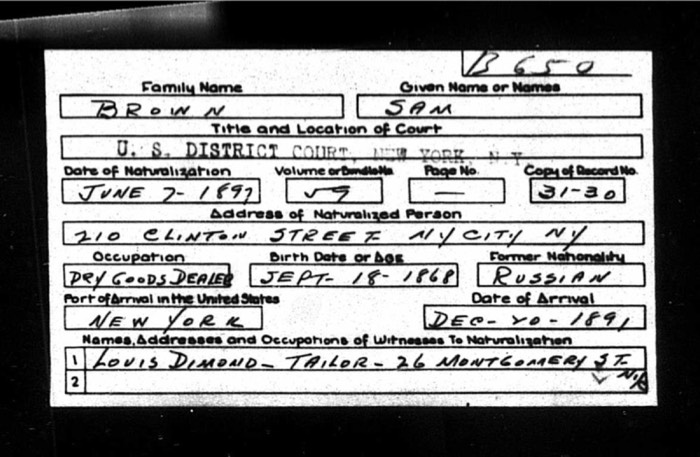 B 650
Family Name Given Name or Names
BROWN SAM
Title and Location of Court
U. S. DISTRICT COURT, NEW YORK, N.Y.
Date of Naturalization Volume or Bundle No. Page No. Copy of Record No.
JUNE 7- 1897 59 — 31-30
Address of Naturalized Person
210 CLINTON STREET NY CITY NY
Occupation Birth Date or Age Former Nationality
DRY GOODS DEALER SEPT- 18- 1868 RUSSIAN
Port of Arrival in the United States Date of Arrival
NEW YORK DEC- 20- 1891
Names, Addresses and Occupations of Witnesses To Naturalization
1 LOUIS DIMOND- TAILOR- 26 MONTGOMERY ST.
2 N.Y.